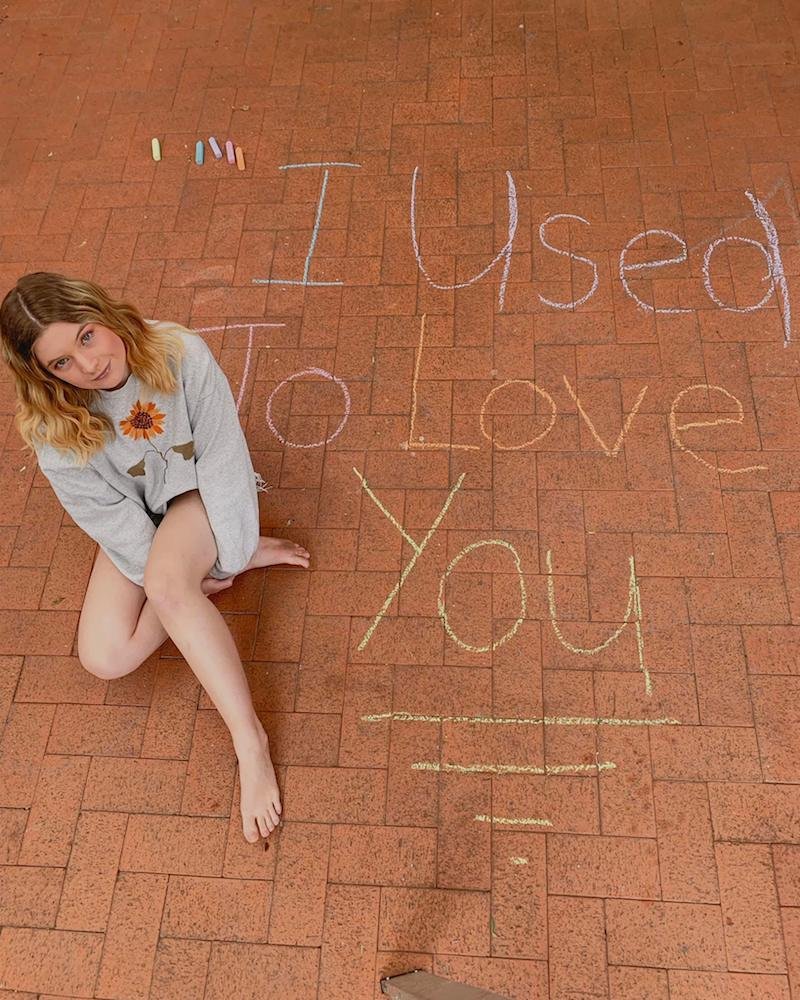 I Used
To Love
You